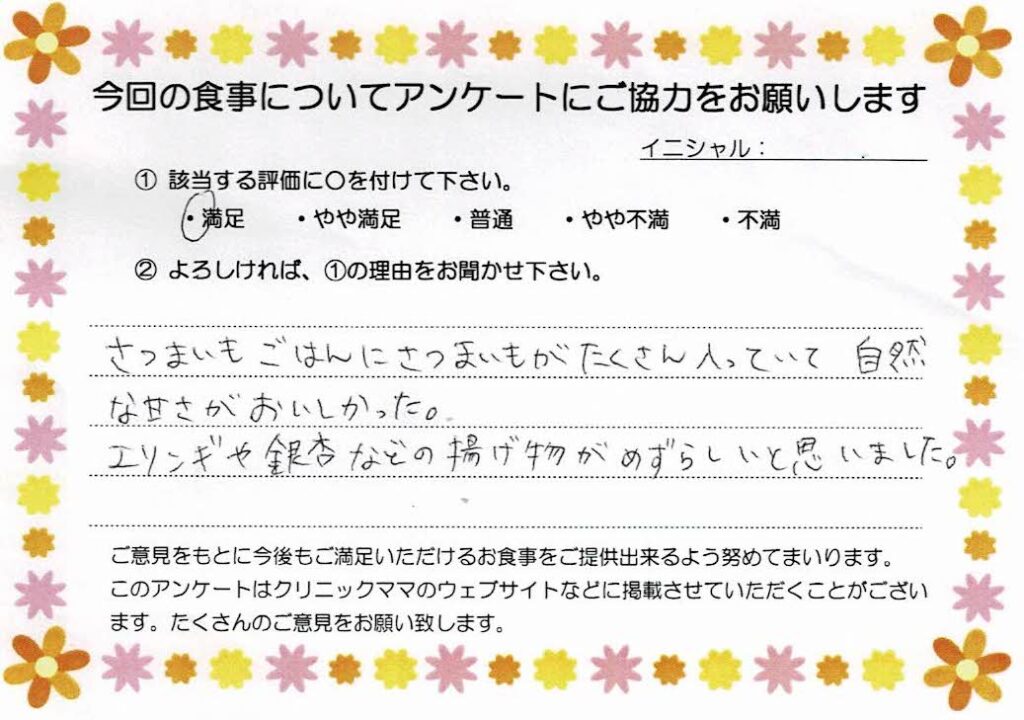 今回の食事についてアンケートにご協力をお願いします
イニシャル：
① 該当する評価に〇を付けて下さい。
・満足　・やや満足　・普通　・やや不満　・不満
② よろしければ、①の理由をお聞かせ下さい。
さつまいもごはんにさつまいもがたくさん入っていて 自然
な甘さがおいしかった。
エリンギや銀杏などの揚げ物がめずらしいと思いました。
ご意見をもとに今後もご満足いただけるお食事をご提供出来るよう努めてまいります。
このアンケートはクリニックママのウェブサイトなどに掲載させていただくことがござい
ます。たくさんのご意見をお願い致します。